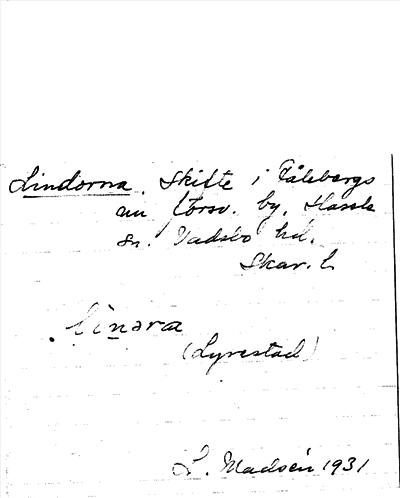 Lindorna. Skifte i Fålebergs
nu försv. by, Hassle
sn. Vadsbo hd.
Skar. l.
lìnəra
(Lyrestad)
L. Madsén 1931